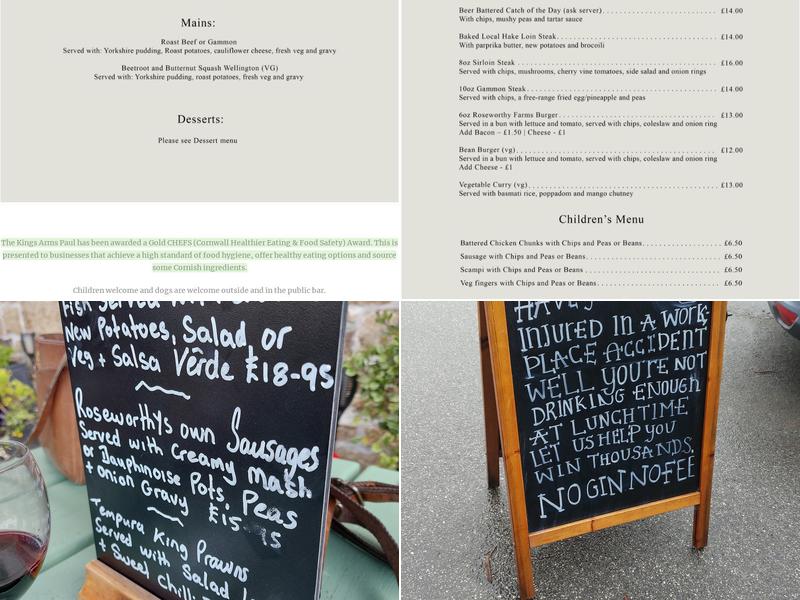 Mains:
Roast Beef or Gammon
Served with: Yorkshire pudding, Roast potatoes, cauliflower cheese, fresh veg and gravy
Beetroot and Butternut Squash Wellington (VG)
Served with: Yorkshire pudding, roast potatoes, fresh veg and gravy
Desserts:
Please see Dessert menu
The Kings Arms Paul has been awarded a Gold CHEFS (Cornwall Healthier Eating & Food Safety) Award. This is
presented to businesses that achieve a high standard of food hygiene, offer healthy eating options and source
some Cornish ingredients.
Children welcome and dogs are welcome outside and in the public bar.
Beer Battered Catch of the Day (ask server) £14.00
With chips, mushy peas and tartar sauce
Baked Local Hake Loin Steak £14.00
With parprika butter, new potatoes and brocoili
8oz Sirloin Steak £16.00
Served with chips, mushrooms, cherry vine tomatoes, side salad and onion rings
10oz Gammon Steak £14.00
Served with chips, a free-range fried egg/pineapple and peas
6oz Roseworthy Farms Burger £13.00
Served in a bun with lettuce and tomato, served with chips, coleslaw and onion ring
Add Bacon – £1.50 | Cheese - £1
Bean Burger (vg) £12.00
Served in a bun with lettuce and tomato, served with chips, coleslaw and onion ring
Add Cheese - £1
Vegetable Curry (vg) £13.00
Served with basmati rice, poppadom and mango chutney
Children's Menu
Battered Chicken Chunks with Chips and Peas or Beans £6.50
Sausage with Chips and Peas or Beans £6.50
Scampi with Chips and Peas or Beans £6.50
Veg fingers with Chips and Peas or Beans £6.50
Fish Served
New Potatoes, Salad or
Veg + Salsa Vêrde £18-95
Roseworthys own Sausages
Served with Creamy Mash
or Dauphinoise Pots, Peas
+ Onion Gravy £15.95
Tempura King Prawns
Served with Salad
+ Sweet Chilli
HAVE
INJURED IN A WORK
PLACE ACCIDENT
WELL YOU'RE NOT
DRINKING ENOUGH
AT LUNCHTIME
LET US HELP YOU
WIN THOUSANDS.
NO GIN NO FEE